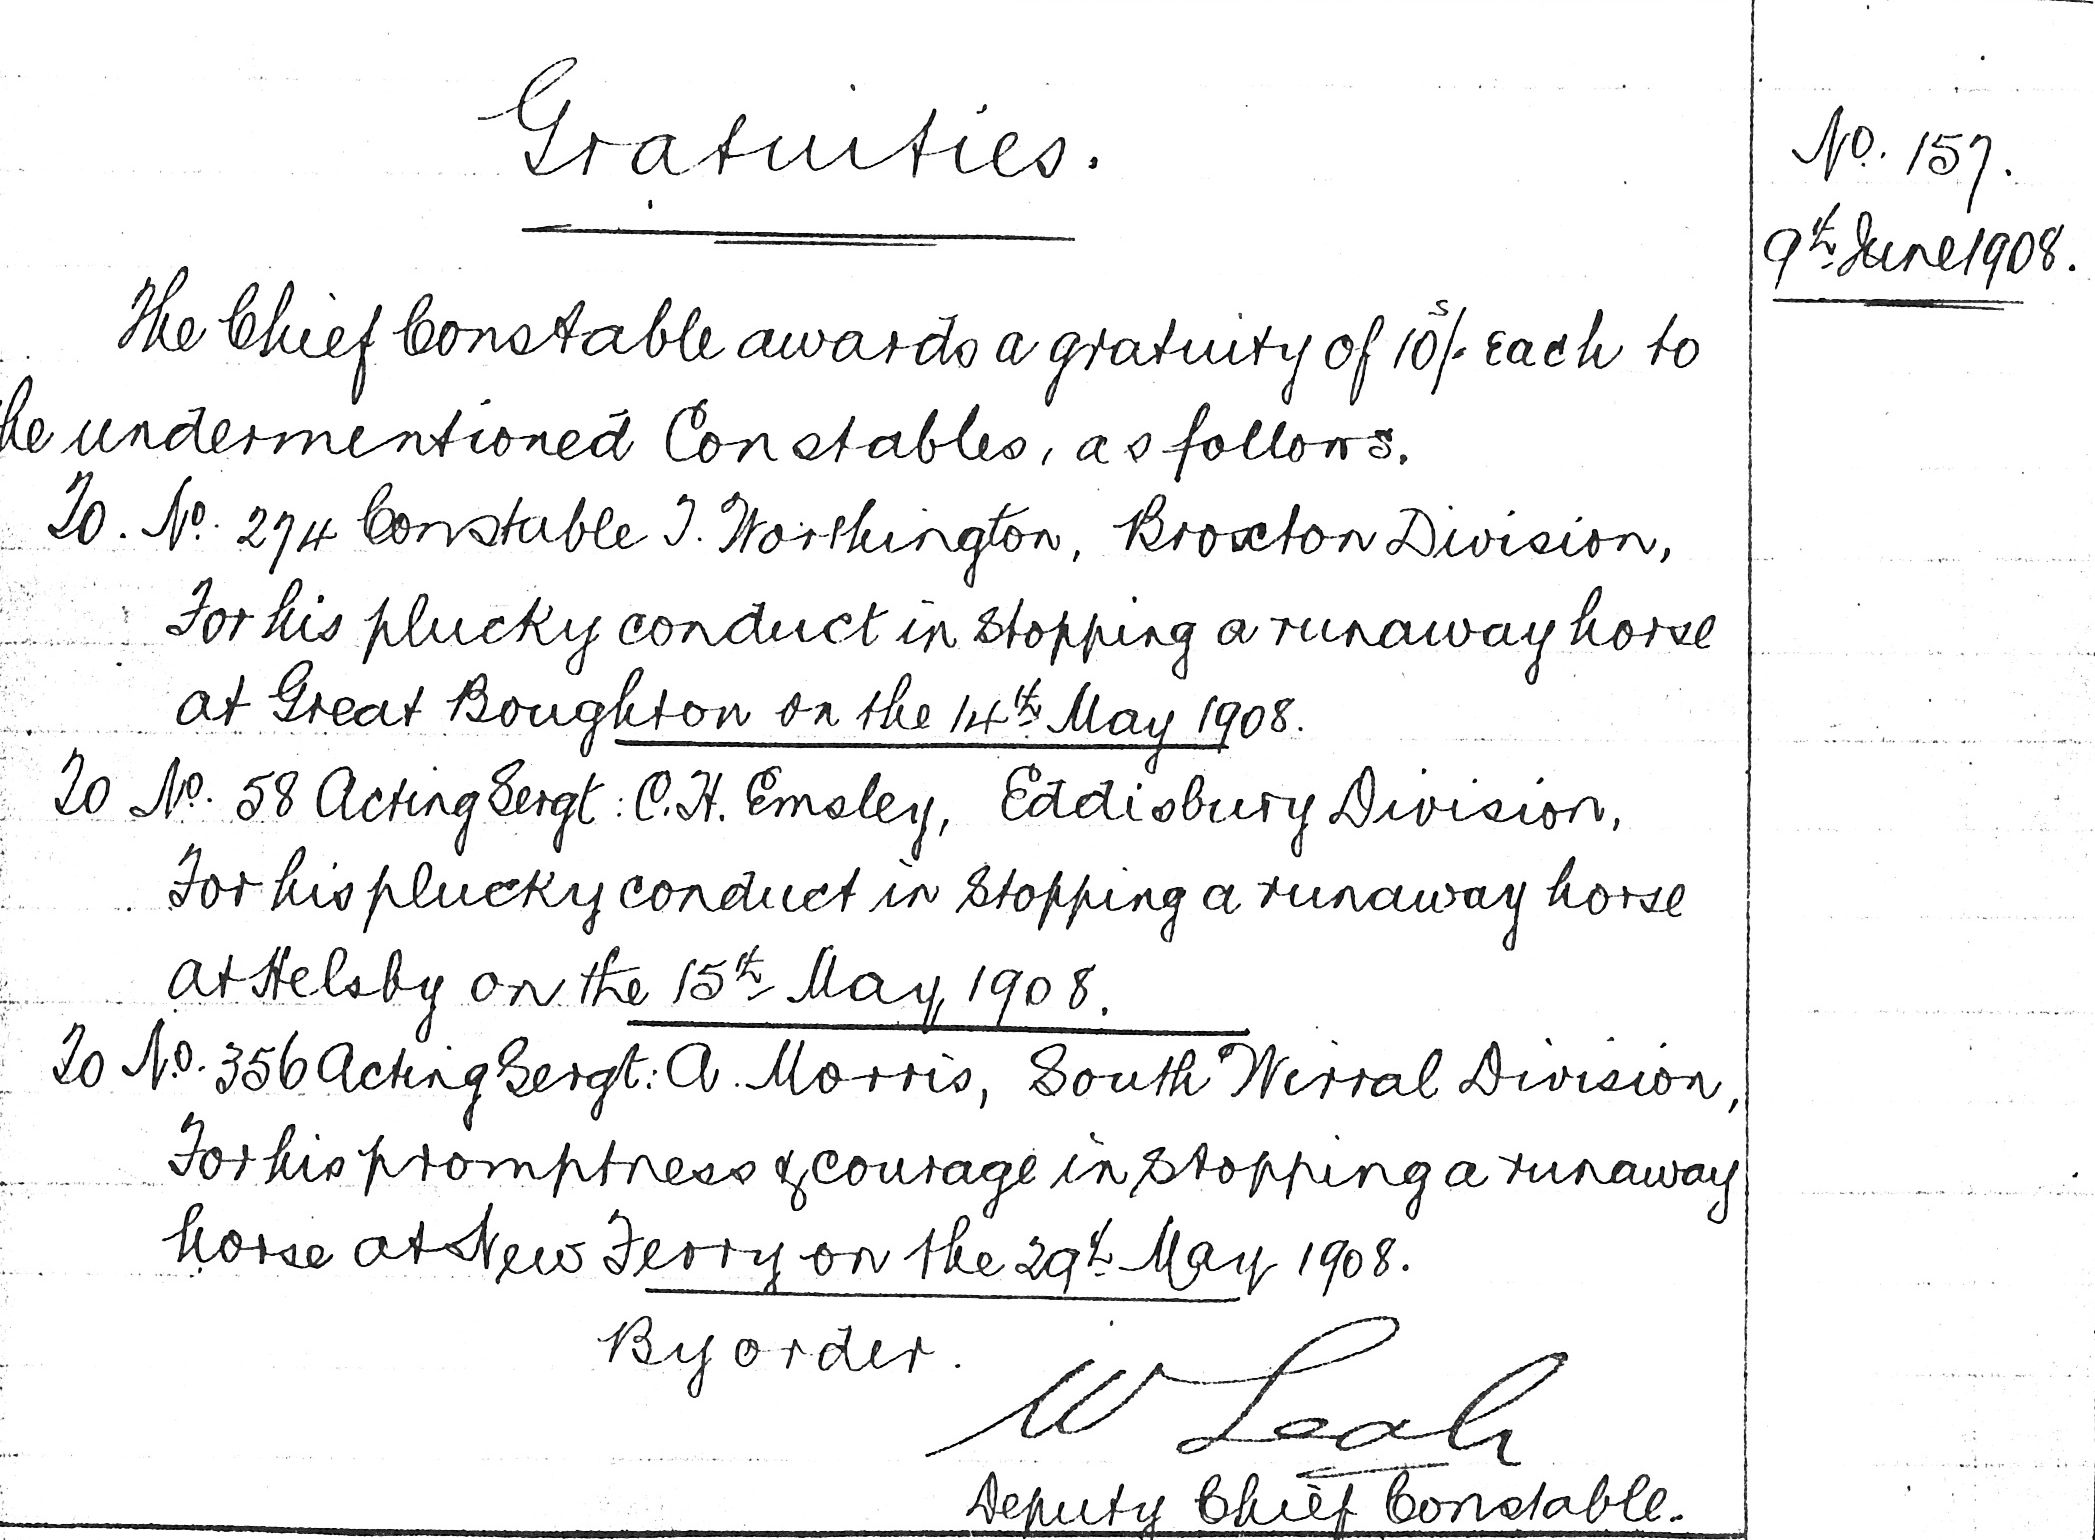 Gratuities.
No. 157.
9th June 1908.
The Chief Constable awards a gratuity of 10s/- each to
he undermentioned Constables, as follows.
To. No. 274 Constable T. Worthington, Broxton Division,
For his plucky conduct in stopping a runaway horse
at Great Boughton on the 14th May 1908.
To No. 58 Acting Sergt: C.H. Emsley, Eddisbury Division,
For his plucky conduct in stopping a runaway horse
at Helsby on the 15th May 1908.
To No. 356 Acting Sergt: A. Morris, South Wirral Division,
For his promptness & courage in stopping a runaway
horse at New Ferry on the 29th May 1908.
By order.
W Leah
Deputy Chief Constable.